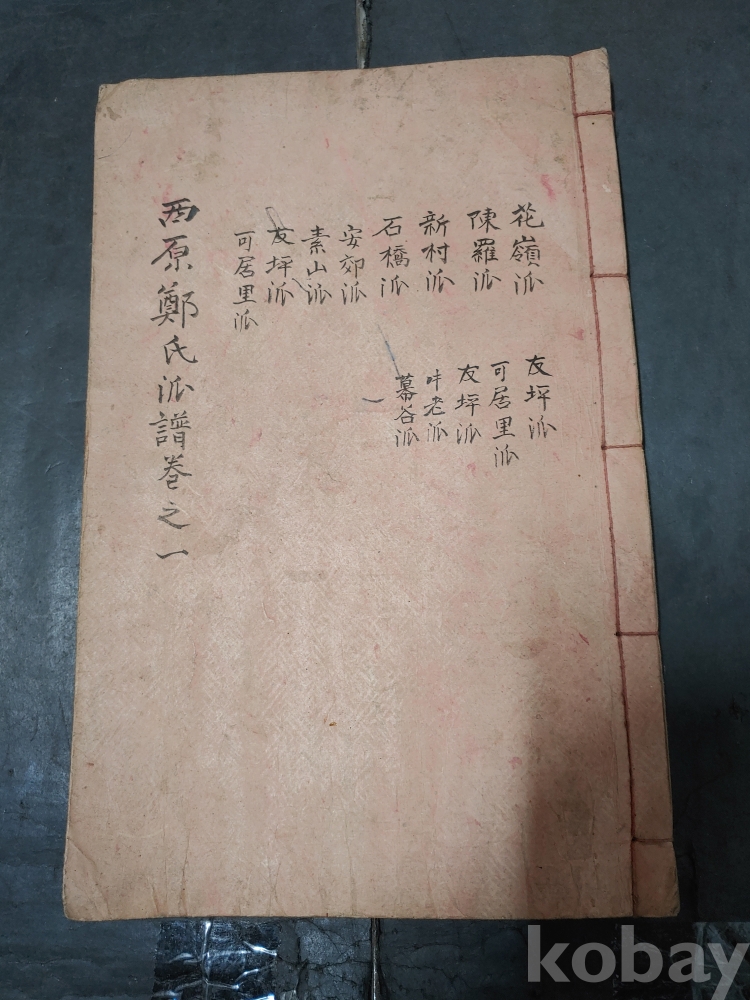 花嶺派
陳羅派
新村派
石橋派
安郊派
素山派
友坪派
可居里派
友坪派
可居里派
友坪派
老派
幕谷派
一
西原鄭氏派譜卷之一
kobay